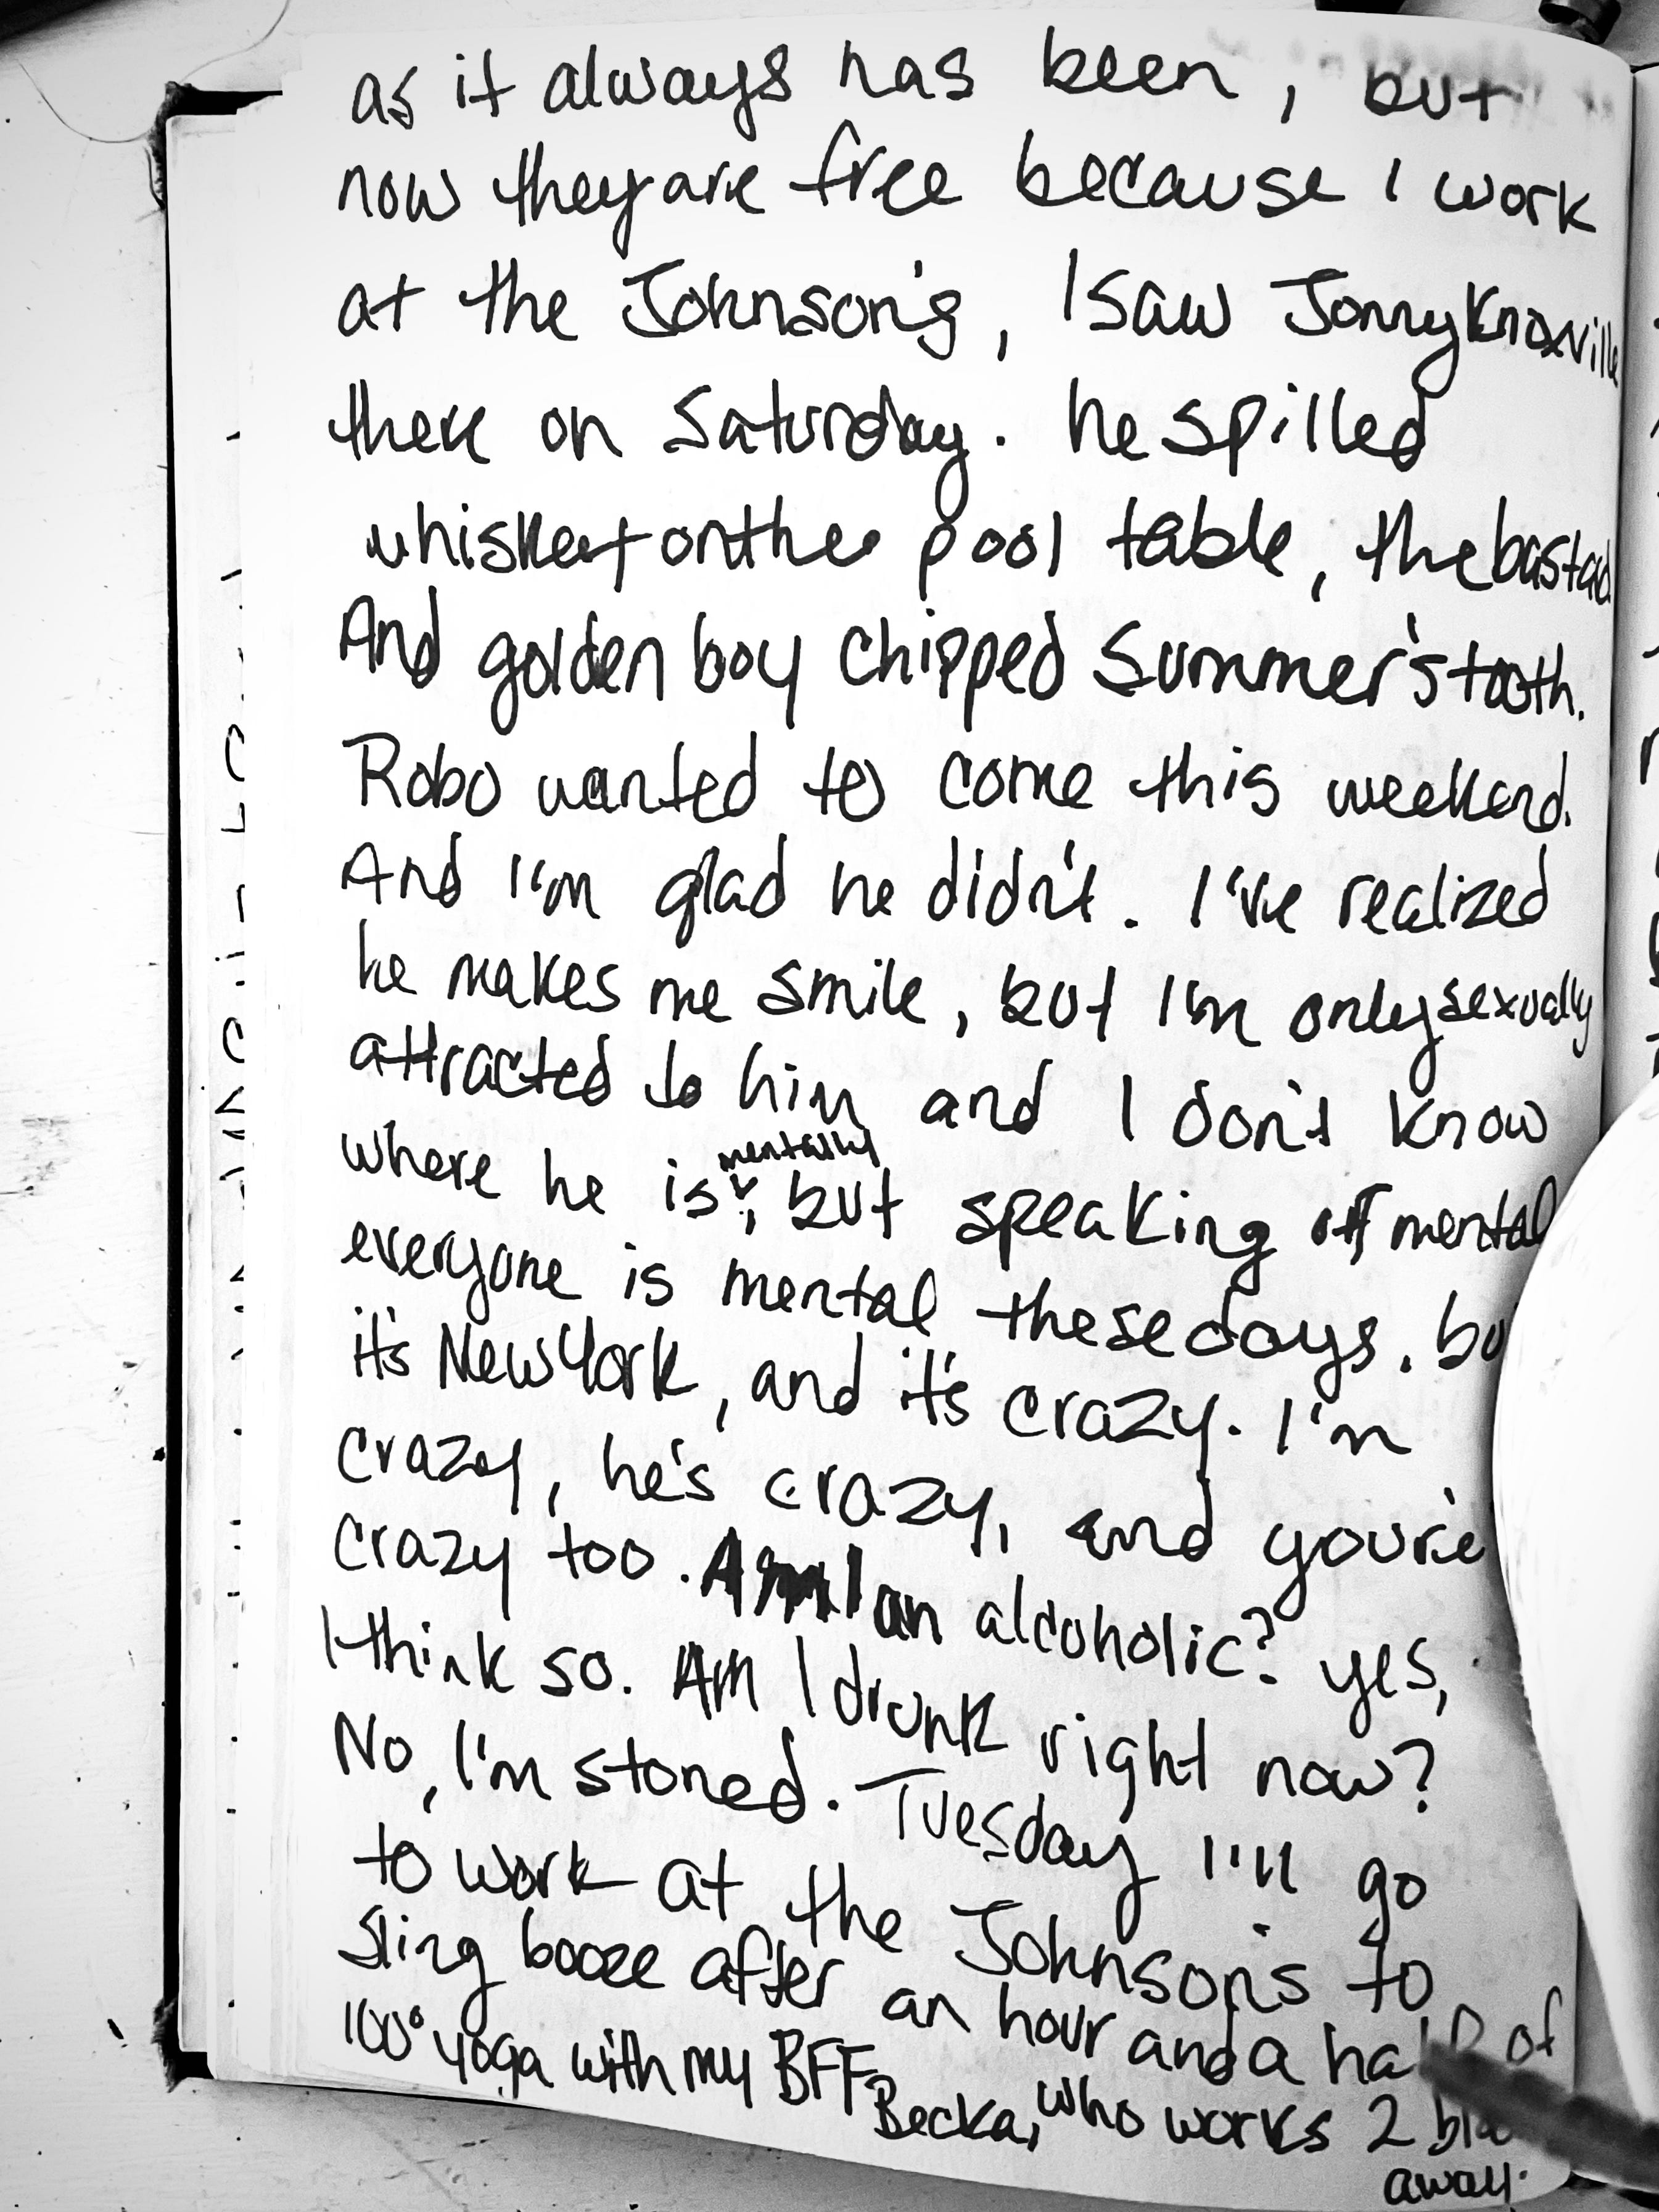 as it always has been, but
now they are free because I work
at the Johnson's, I saw Jonny Knoxville
there on Saturday. he spilled
on the pool table, the bastad.
And golden boy chipped Summer's tooth.
Robo wanted to come this weekend.
And I'm glad he didn't. I've realized
he makes me smile, but I'm only sexually
attracted to him and I don't know
where he is mentally, but speaking off mental
everyone is mental these days.
it's New York, and it's crazy. I'm
crazy, he's crazy, and you're
crazy too. Am I an alcoholic? yes,
I think so. Am I drunk right now?
No, I'm stoned. Tuesday I'll go
to work at the Johnson's to
sling booze after an hour and a half of
100° yoga with my BFF
Becka, who works 2
away.